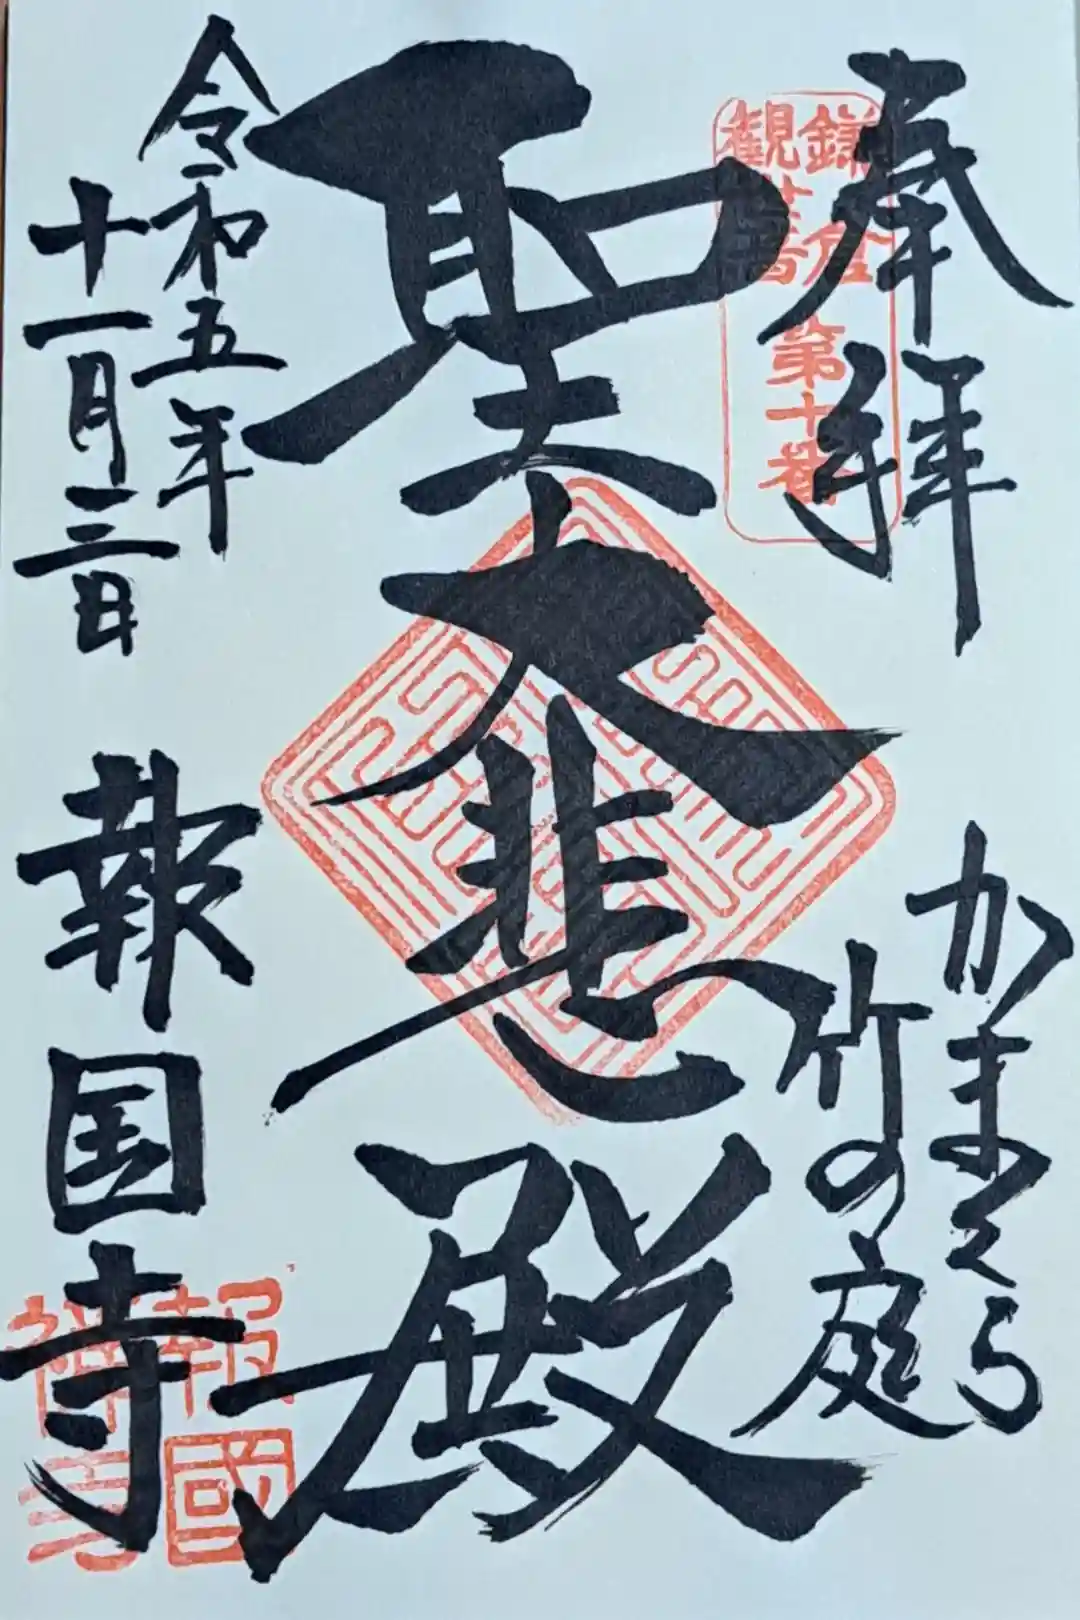 奉拝
鎌倉
観世音
第十番
かまくら
竹の庭
聖大悲殿
令和五年
十一月三日
報国寺
報國
禅寺